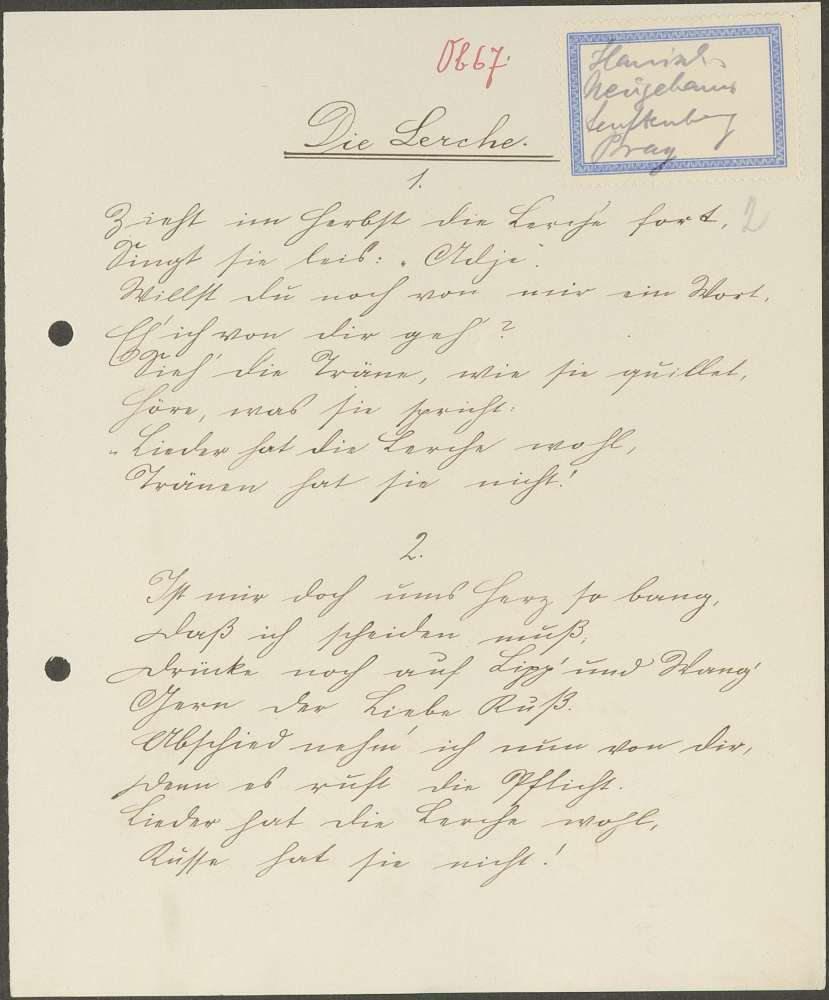 Ob 67.
Neugebaur
Senftenberg
Prag
Die Lerche.
1.
Zieht im Herbst die Lerche fort,
2
Singt sie leis: „Adje“.
Willst du noch von mir ein Wort,
Eh' ich von dir geh'?
Sieh' die Träne, wie sie quillet,
Höre, was sie spricht:
„Lieder hat die Lerche wohl,
Tränen hat sie nicht!
2.
Ist mir doch ums Herz so bang,
Daß ich scheiden muß,
Drücke noch auf Lipp' und Wang'
Gern der Liebe Kuß.
Abschied nehm' ich nun von dir,
Denn es ruft die Pflicht.
Lieder hat die Lerche wohl,
Küsse hat sie nicht!